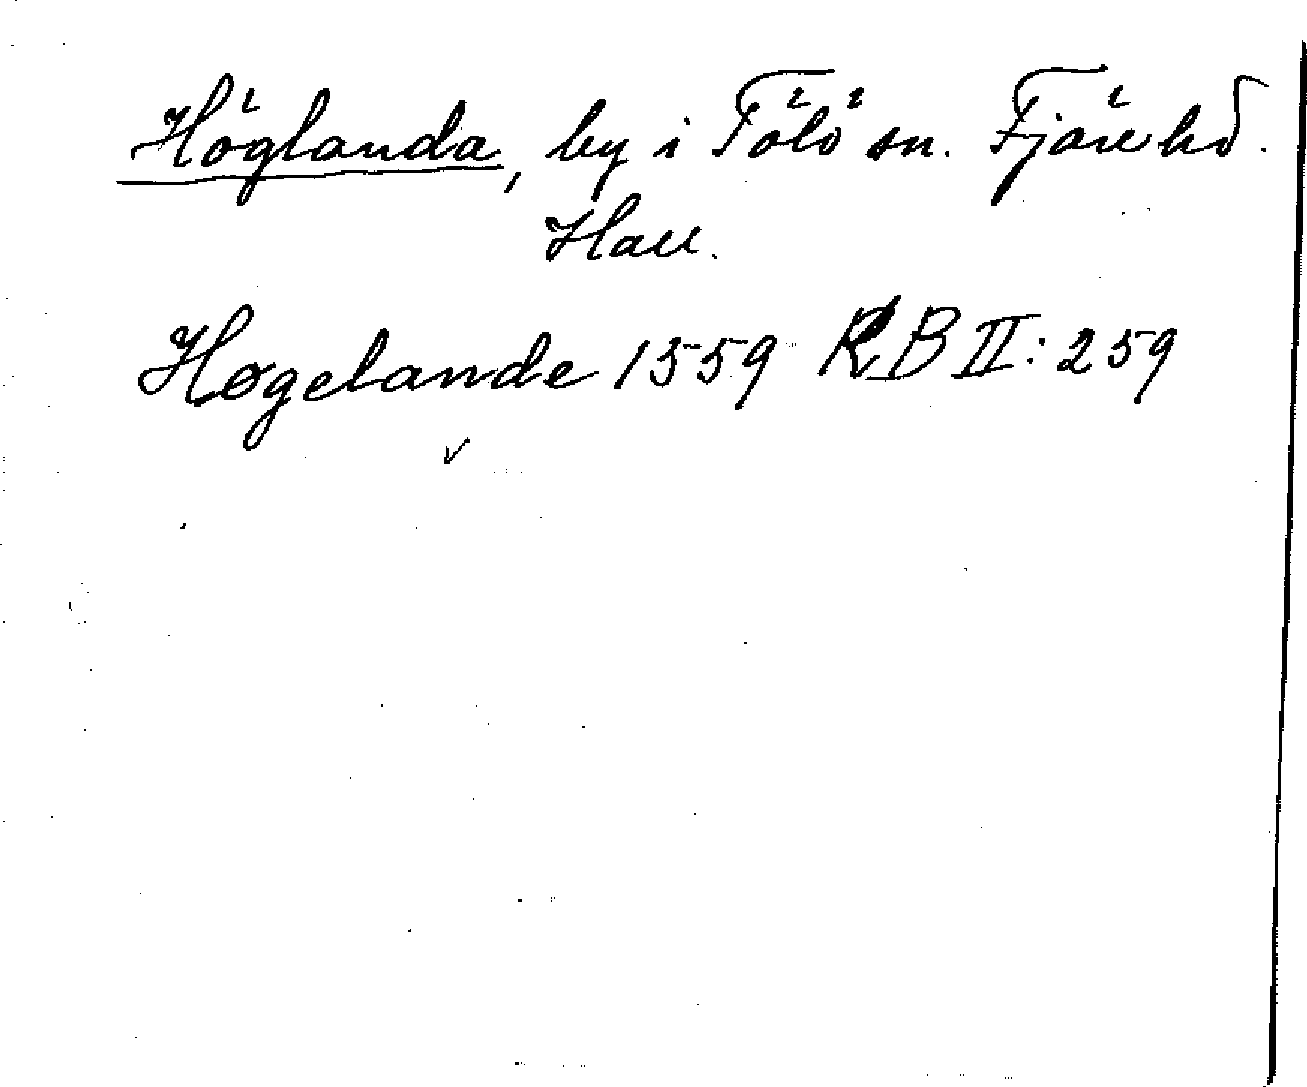 Höglanda, by i Tölö sn. Fjäre hd.
Hall.
Høgelande 1559 RB II: 259